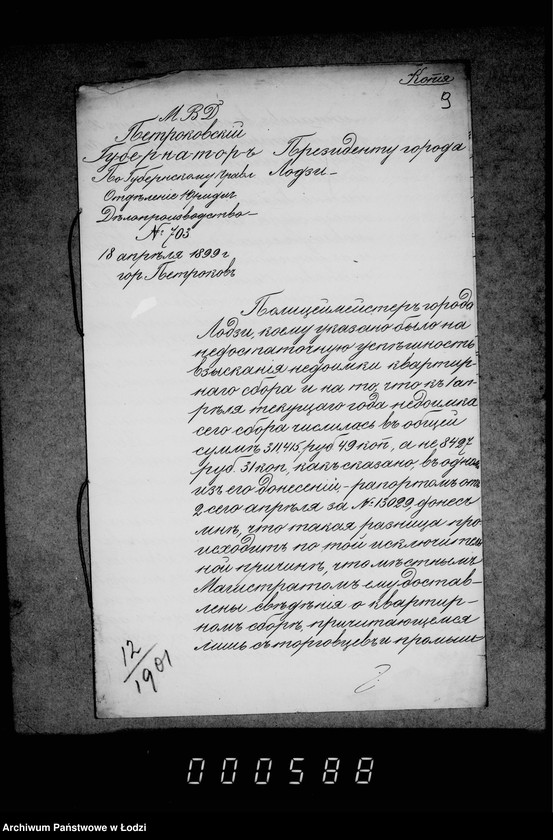 Копія
9
М В Д
Петроковскій
Губернаторъ
По Губернскому Правл
Отдѣленіе Юридич
Дѣлопроизводство
№ 703
18 апрѣля 1899 г
гор. Петроковъ
Президенту города
Лодзи
Полицеймейстеръ города
Лодзи, кому указано было на
недостаточную успѣшность
взысканія недоимки квартир-
наго сбора и на то, что къ 1 ап-
рѣля текущаго года недоимка
сего сбора числилась въ общей
суммѣ 311415 руб 49 коп, а не 8427
руб. 31 коп, какъ сказано, въ одномъ
изъ его донесеній, - рапортомъ отъ
2 сего апрѣля за № 15099, донесъ
мнѣ, что такая разница про
исходитъ по той исключител
ной причинѣ, что мѣстнымъ
Магистратомъ ему достав-
лены свѣдѣнія о квартир-
номъ сборѣ, причитающемся
лишь съ торговцевъ и промыш
12/1901
000588
Archiwum Państwowe w Łodzi